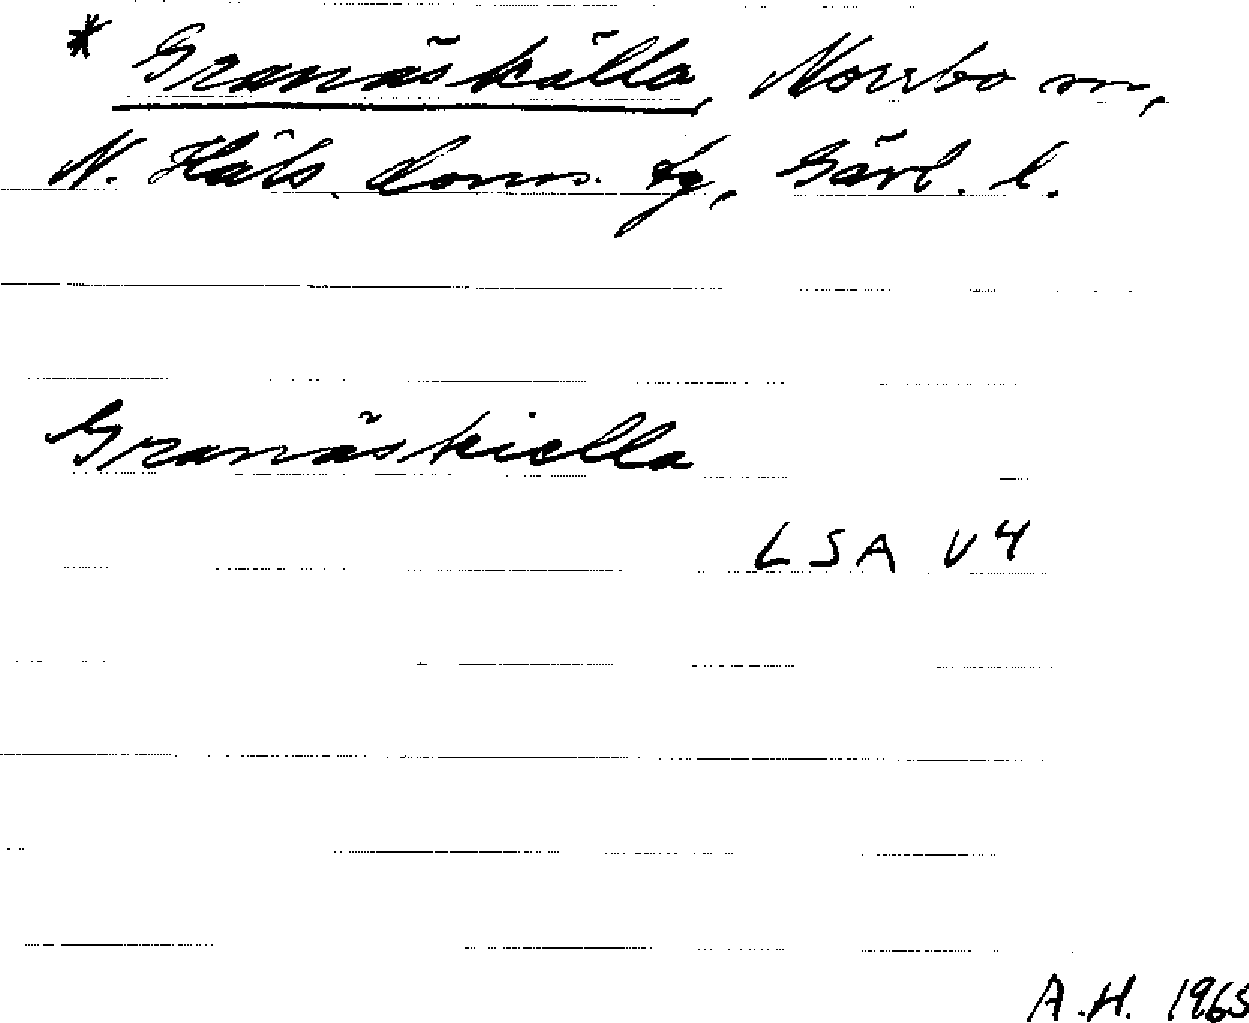 * Granäskälla, Norrbo sn,
N. Häls. doms. tg, Gävl. l.
Granäskiella
LSA V4
A.H. 1965